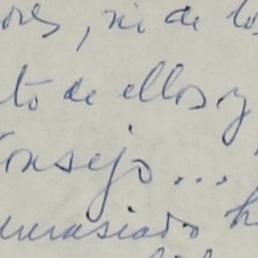 ores, ni de los
to de ellos y
Consejo...
emasiado h